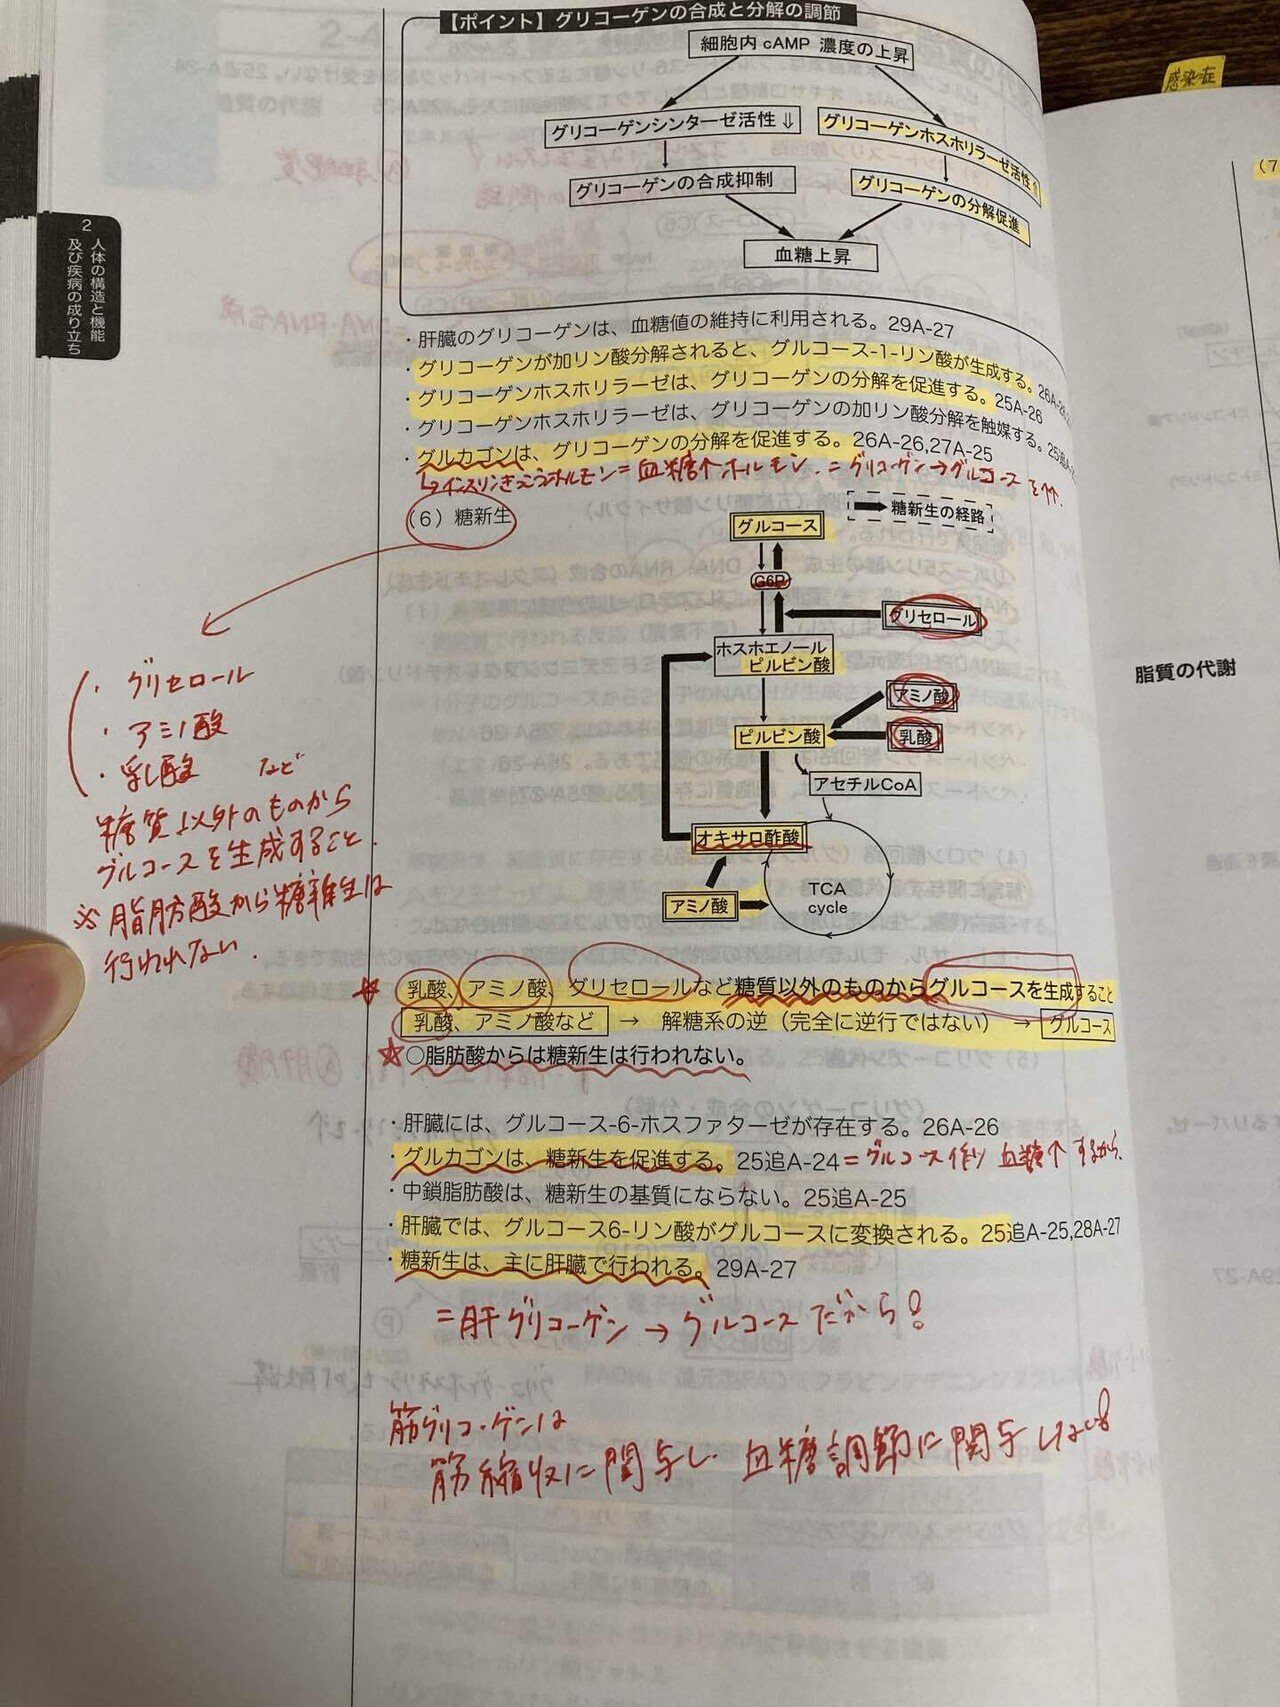 【ポイント】グリコーゲンの合成と分解の調節
細胞内 cAMP 濃度の上昇
グリコーゲンシンターゼ活性⇓
グリコーゲンホスホリラーゼ活性⇑
グリコーゲンの合成抑制
グリコーゲンの分解促進
血糖上昇
感染症
(7
2 人体の構造と機能
及び疾病の成り立ち
・肝臓のグリコーゲンは、血糖値の維持に利用される。29A-27
・グリコーゲンが加リン酸分解されると、グルコース-1-リン酸が生成する。26A-26
・グリコーゲンホスホリラーゼは、グリコーゲンの分解を促進する。25A-26
・グリコーゲンホスホリラーゼは、グリコーゲンの加リン酸分解を触媒する。25追A-
・グルカゴンは、グリコーゲンの分解を促進する。26A-26,27A-25
= 血糖↑ホルモン. = グリコーゲン→グルコース
(6) 糖新生
グルコース
糖新生の経路
G6P
グリセロール
ホスホエノール
ピルビン酸
アミノ酸
ピルビン酸
乳酸
アセチルCoA
オキサロ酢酸
TCA
cycle
アミノ酸
脂質の代謝
・グリセロール
・アミノ酸
・乳酸 など
糖質以外のものから
グルコースを生成すること.
※ 脂肪酸から糖新生は
行われない.
☆ 乳酸、アミノ酸、グリセロールなど糖質以外のものからグルコースを生成すること
乳酸、アミノ酸など → 解糖系の逆（完全に逆行ではない） → グルコース
☆○脂肪酸からは糖新生は行われない。
・肝臓には、グルコース-6-ホスファターゼが存在する。26A-26
・グルカゴンは、糖新生を促進する。25追A-24 = グルコース作り 血糖↑するから.
・中鎖脂肪酸は、糖新生の基質にならない。25追A-25
・肝臓では、グルコース6-リン酸がグルコースに変換される。25追A-25,28A-27
・糖新生は、主に肝臓で行われる。29A-27
= 肝グリコーゲン → グルコースだから!
筋グリコーゲンは
筋縮収に関与し 血糖調節に関与しない